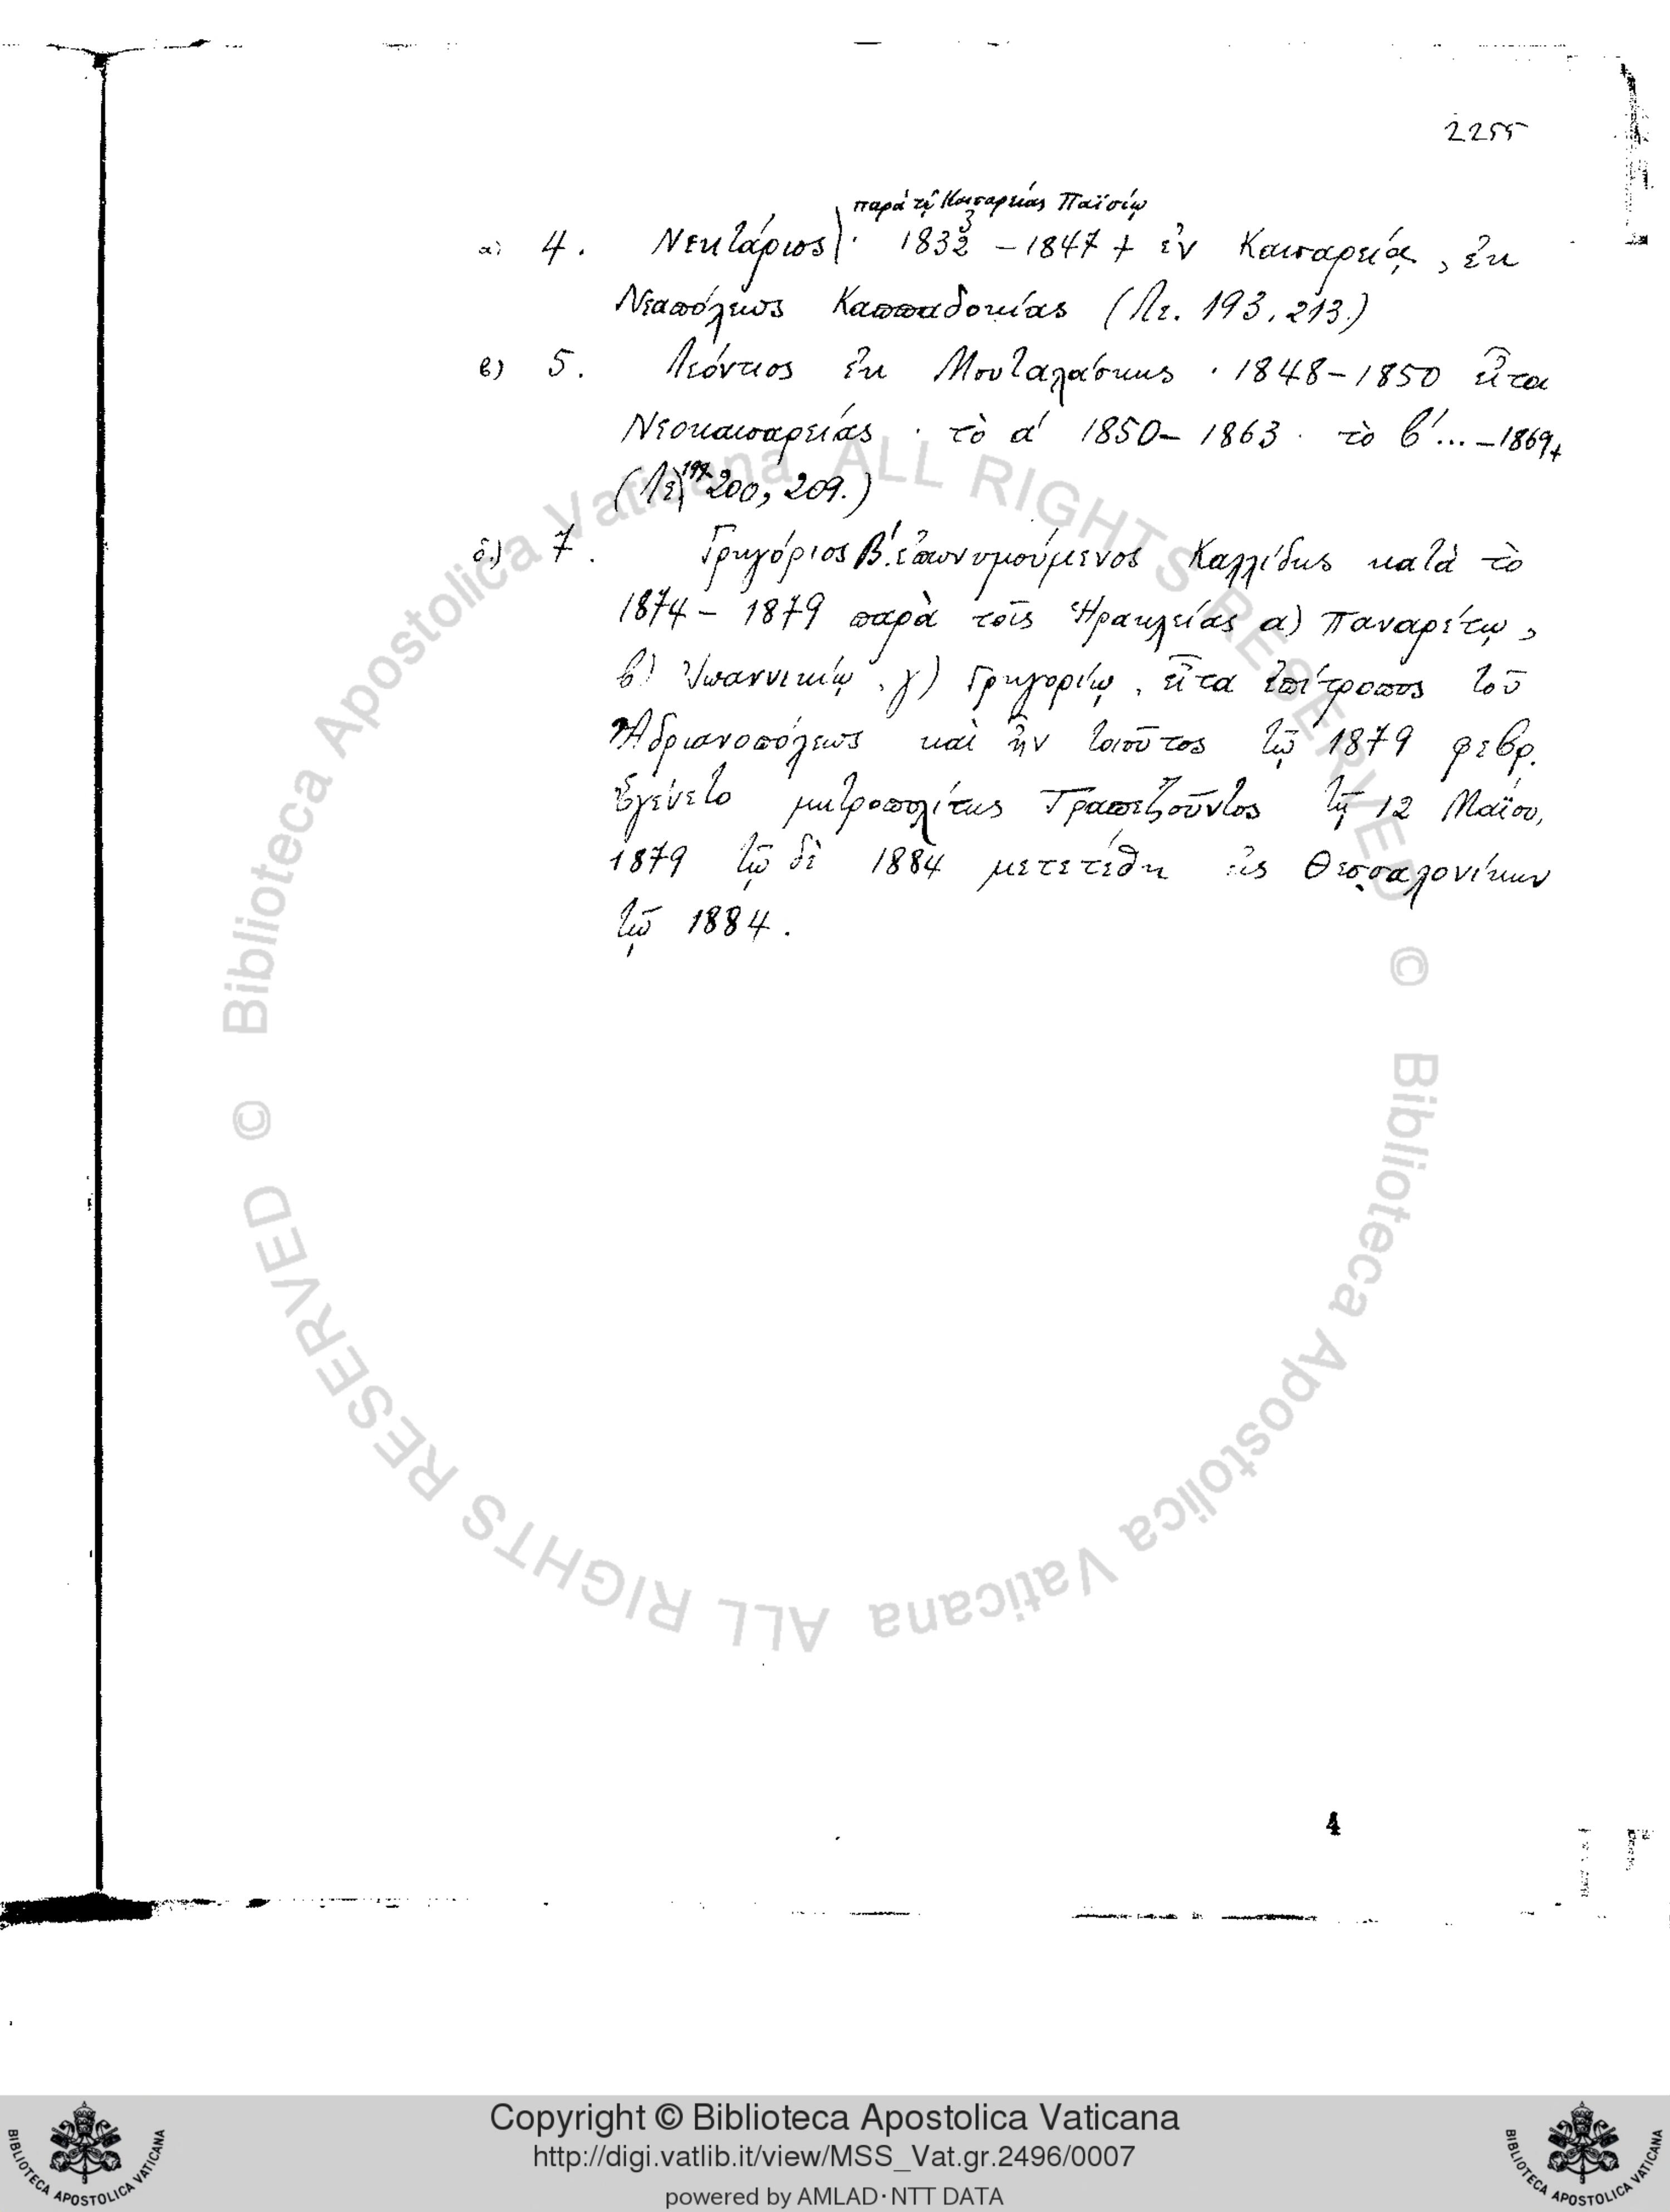 2255
παρὰ τῷ Καισαρείας Παϊσίῳ
α) 4. Νεκτάριος · 1832 3 – 1847 + ἐν Καισαρείᾳ, ἐκ
Νεαπόλεως Καππαδοκίας (Λε. 193, 213.)
β) 5. Λεόντιος ἐκ Μουταλάσκης · 1848–1850 εἶτα
Νεοκαισαρείας · τὸ α' 1850– 1863 · τὸ β'... –1869+
(Λε 197 200, 209.)
δ.) 7. Γρηγόριος Β'. ἐπωνυμούμενος Καλλίδης κατὰ τὸ
1874 – 1879 παρὰ τοῖς Ἡρακλείας α) Παναρέτῳ,
β) Ἰωαννικίῳ, γ) Γρηγορίῳ, εἶτα ἐπίτροπος τοῦ
Ἀδριανοπόλεως καὶ ἦν τοιοῦτος τῷ 1879 φεβρ.
Ἐγένετο μητροπολίτης Τραπεζοῦντος τῇ 12 Μαΐου,
1879 τῷ δὲ 1884 μετετέθη εἰς Θεσσαλονίκην
τῷ 1884.
4
© Biblioteca Apostolica Vaticana ALL RIGHTS RESERVED © Biblioteca Apostolica Vaticana ALL RIGHTS RESERVED
BIBLIOTECA APOSTOLICA VATICANA
Copyright © Biblioteca Apostolica Vaticana
http://digi.vatlib.it/view/MSS_Vat.gr.2496/0007
powered by AMLAD·NTT DATA
BIBLIOTECA APOSTOLICA VATICANA